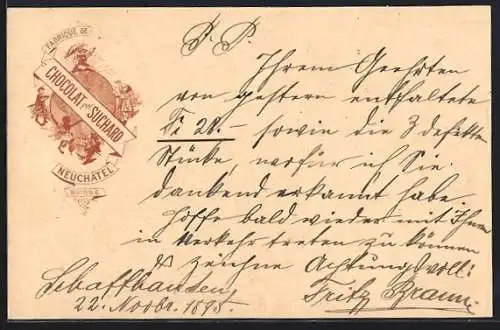 FABRIQUE DE
CHOCOLAT par SUCHARD
NEUCHÂTEL
SUISSE
P. P.
Ihrem Geehrten
von gestern entfaltete
Fr 20.- sowie die 3 defekten
Stücke, wofür ich Sie
dankend erkannt habe.
Hoffe bald wieder mit Ihnen
in Verkehr treten zu können
& zeichne Achtungsvoll:
Schaffhausen Fritz Braun
22. Novbr. 1895.